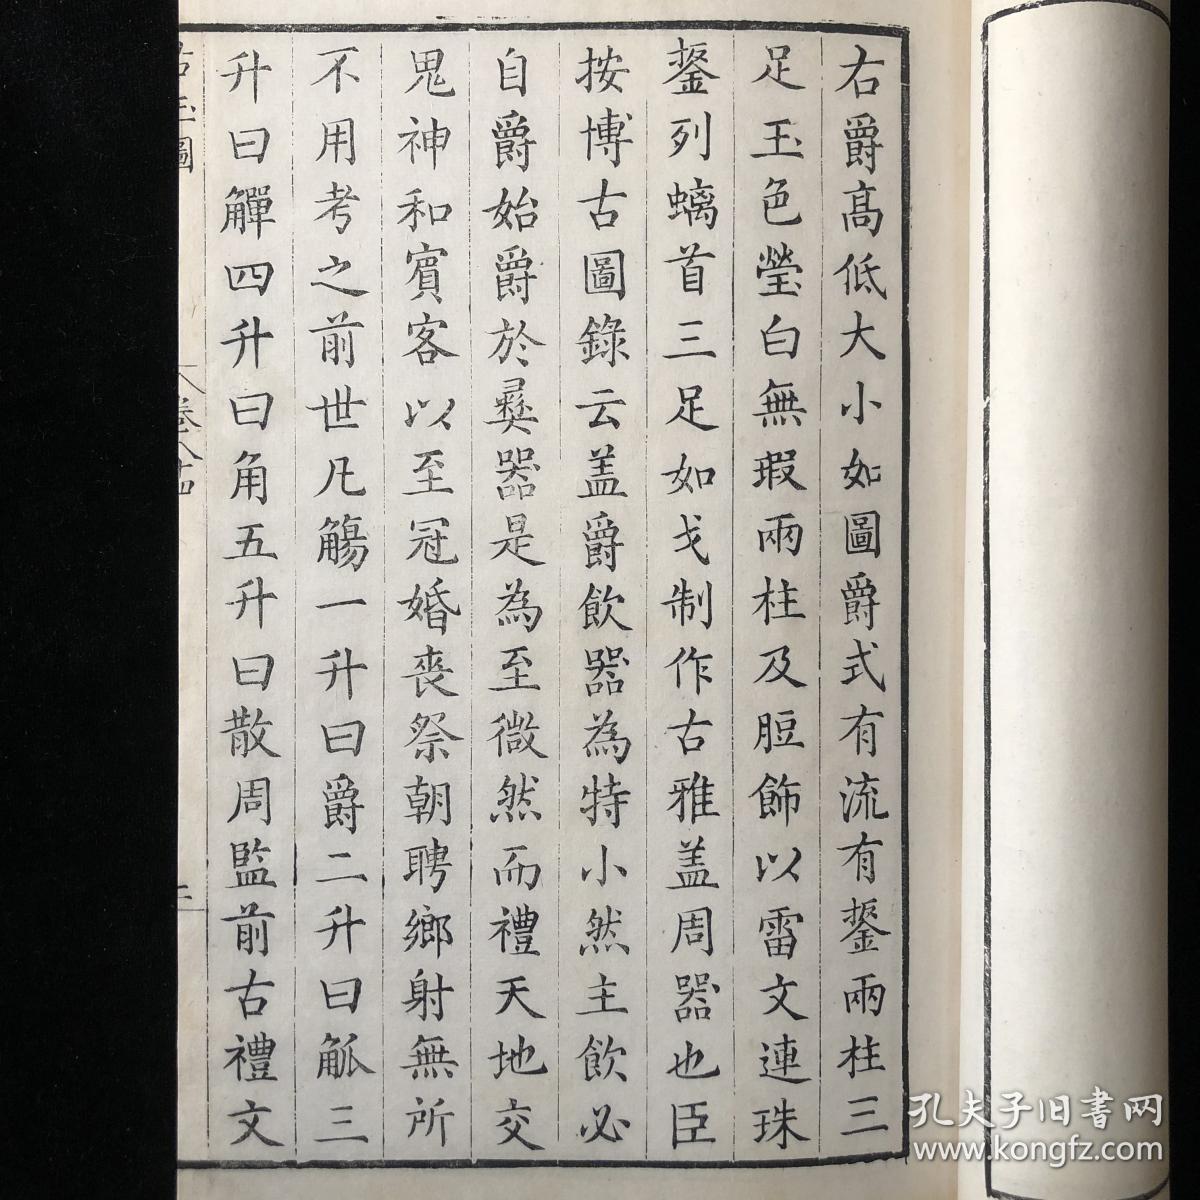 右爵髙低大小如圖爵式有流有鋬兩柱三
足玉色瑩白無瑕兩柱及脰飾以雷文連珠
鋬列螭首三足如戈制作古雅盖周器也臣
按博古圖錄云盖爵飲器為特小然主飲必
自爵始爵於彜器是為至微然而禮天地交
鬼神和賓客以至冠婚喪祭朝聘鄉射無所
不用考之前世凡觴一升曰爵二升曰觚三
升曰觶四升曰角五升曰散周監前古禮文
古玉圖
孔夫子旧書网
www.kongfz.com